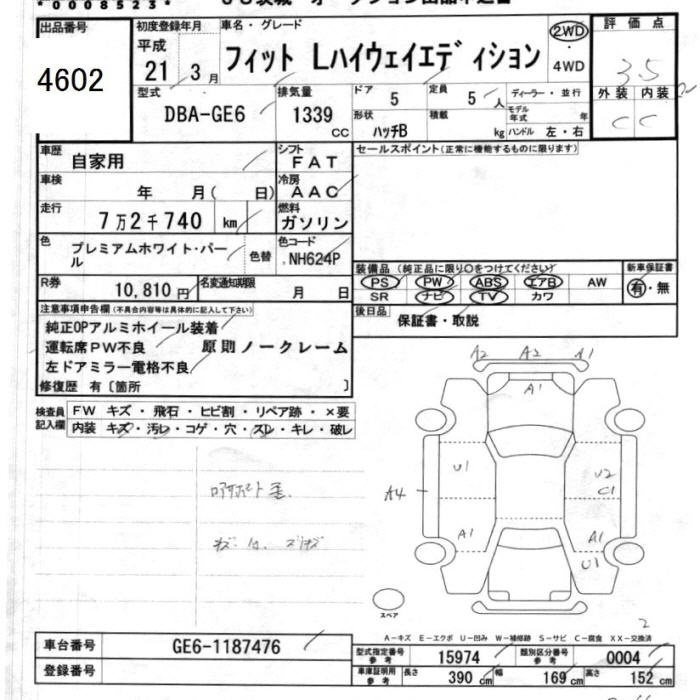 *0008523*
出品番号
4602
初度登録年月
平成
21 3 月
車名・グレード
フィット Lハイウェイエディション
2WD
・
4WD
評価点
3.5
型式
DBA-GE6
排気量
1339 CC
ドア 5
定員 5 人
ディーラー・並行
形状 ハッチB
積載 kg
モデル年式 年
ハンドル 左・右
外装 内装
C C
車歴 自家用
シフト FAT
セールスポイント(正常に機能するものに限ります)
車検 年 月( 日)
冷房 AAC
走行 7万2千740 km
燃料 ガソリン
色 プレミアムホワイト・パール
色替
色コード NH624P
装備品 (純正品に限り○をつけてください)
新車保証書
PS PW ABS エアB AW
有・無
SR ナビ TV カワ
R券 10,810円
名変通知期限 月 日
後日品 保証書・取説
注意事項申告欄(不具合内容等は具体的に記入して下さい)
純正OPアルミホイール装着
運転席PW不良 原則ノークレーム
左ドアミラー電格不良
修復歴 有〔箇所 〕
検査員記入欄
FW キズ・飛石・ヒビ割・リペア跡・×要
内装 キズ・汚レ・コゲ・穴・スレ・キレ・破レ
A2 A2 A1
A1
U1
U2
C1
A4
A1
A1
U1
スペア
2
A-キズ E-エクボ U-凹み W-補修跡 S-サビ C-腐食 XX-交換済
車台番号 GE6-1187476
登録番号
型式指定番号 参考 15974
類別区分番号 参考 0004
車庫証明用 参考 長さ 390 cm 幅 169 cm 高さ 152 cm